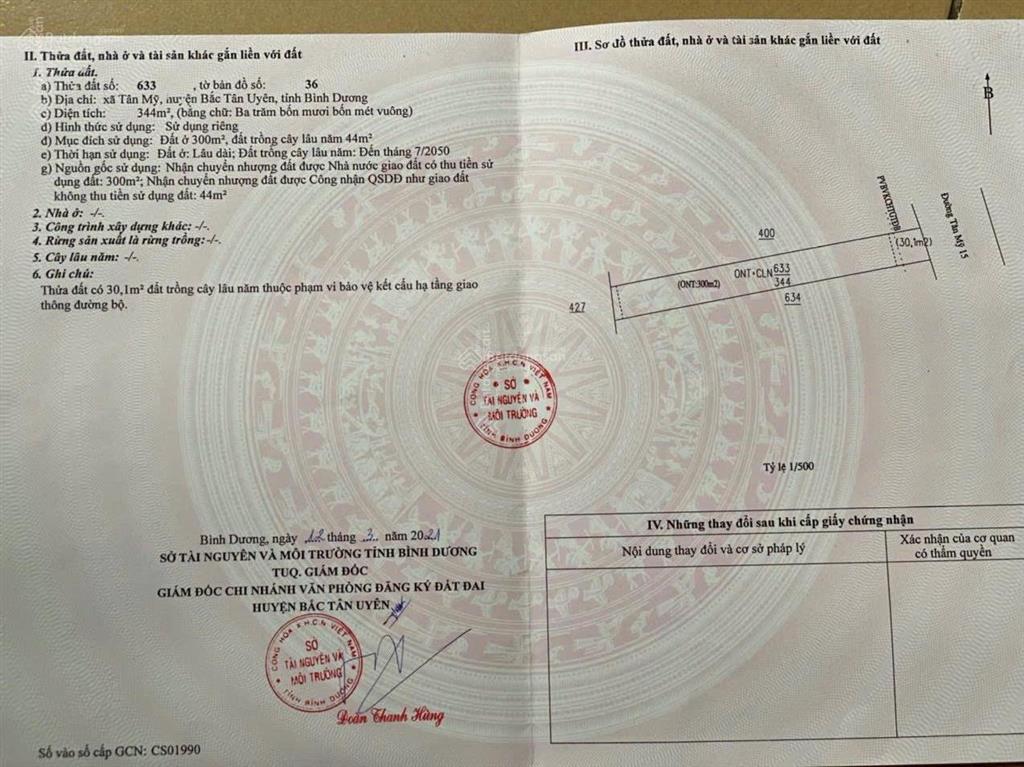 II. Thửa đất, nhà ở và tài sản khác gắn liền với đất
1. Thửa đất.
a) Thửa đất số: 633 , tờ bản đồ số: 36
b) Địa chỉ: xã Tân Mỹ, huyện Bắc Tân Uyên, tỉnh Bình Dương
c) Diện tích: 344m², (bằng chữ: Ba trăm bốn mươi bốn mét vuông)
d) Hình thức sử dụng: Sử dụng riêng
đ) Mục đích sử dụng: Đất ở 300m², đất trồng cây lâu năm 44m²
e) Thời hạn sử dụng: Đất ở: Lâu dài; Đất trồng cây lâu năm: Đến tháng 7/2050
g) Nguồn gốc sử dụng: Nhận chuyển nhượng đất được Nhà nước giao đất có thu tiền sử
dụng đất: 300m²; Nhận chuyển nhượng đất được Công nhận QSDĐ như giao đất
không thu tiền sử dụng đất: 44m²
2. Nhà ở: -/-.
3. Công trình xây dựng khác: -/-.
4. Rừng sản xuất là rừng trồng:-/-.
5. Cây lâu năm: -/-.
6. Ghi chú:
Thửa đất có 30,1m² đất trồng cây lâu năm thuộc phạm vi bảo vệ kết cấu hạ tầng giao
thông đường bộ.
Bình Dương, ngày 12 tháng 3 năm 2021
SỞ TÀI NGUYÊN VÀ MÔI TRƯỜNG TỈNH BÌNH DƯƠNG
TUQ. GIÁM ĐỐC
GIÁM ĐỐC CHI NHÁNH VĂN PHÒNG ĐĂNG KÝ ĐẤT ĐAI
HUYỆN BẮC TÂN UYÊN
CỘNG HÒA X.H.C.N VIỆT NAM
SỞ
TÀI NGUYÊN VÀ
MÔI TRƯỜNG
TỈNH BÌNH DƯƠNG
Đoàn Thanh Hùng
Số vào sổ cấp GCN: CS01990
CỘNG HÒA X.H.C.N VIỆT NAM
SỞ
TÀI NGUYÊN VÀ
MÔI TRƯỜNG
TỈNH BÌNH DƯƠNG
III. Sơ đồ thửa đất, nhà ở và tài sản khác gắn liền với đất
B
PVBVKCHTGTĐB
Đường Tân Mỹ 15
400
(30,1m2)
ONT+CLN 633
344
(ONT:300m2)
634
427
Tỷ lệ 1/500
IV. Những thay đổi sau khi cấp giấy chứng nhận
Nội dung thay đổi và cơ sở pháp lý
Xác nhận của cơ quan
có thẩm quyền